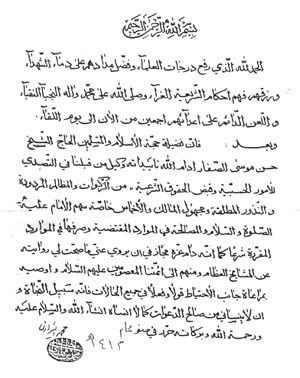 بسم الله الرحمن الرحيم
الحمد لله الذي رفع درجات العلماء وفضل مدادهم على دماء الشهداء
ورزقهم فهم أحكام الشريعة الغراء وصلى الله على محمد وآله النجباء النقباء
واللعن الدائم على أعدائهم أجمعين من الآن الى يوم اللقاء
وبعد فان فضيلة حجة الاسلام والمسلمين الحاج الشيخ
حسن موسى الصفار ادام الله تأييداته وكيل من قبلنا في التصدي
للأمور الحسبية وقبض الحقوق الشرعية من الزكوات والمظالم المردودة
والنذور المطلقة ومجهول المالك والأخماس خاصة سهم الامام عليه
الصلوة والسلام والمصالحة في الموارد المقتضية وصرفها في الموارد
المقررة شرعا كما انه دام عزه مجاز في ان يروي عني ما صحت لي روايته
عن المشايخ العظام ومنهم الى ائمتنا المعصومين عليهم السلام واوصيه
بمراعاة جانب الاحتياط قولا وفعلا في جميع الحالات فانه سبيل النجاة و
ان لا ينساني من صالح الدعوات كما لا انساه انشاء الله والسلام عليه
ورحمة الله وبركاته حرر في صفر عام
١٤١٣ هـ